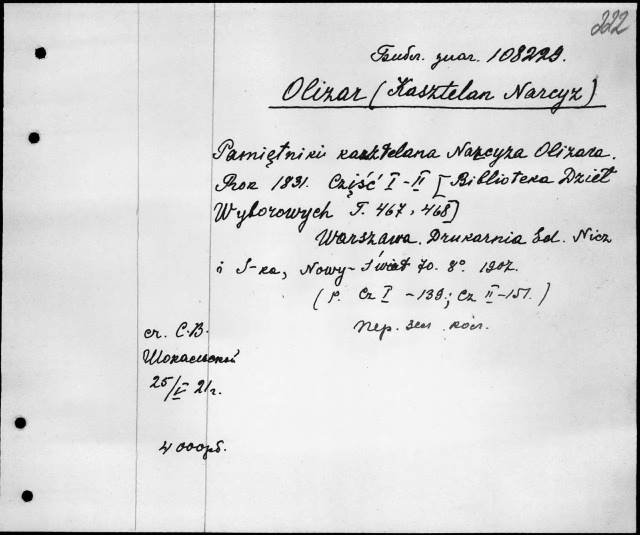 222
108229.
Olizar (Kasztelan Narcyz)
Pamiętniki kasztelana Narcyza Olizara.
Rok 1831. Część I-II [Biblioteka Dzieł
Wyborowych T. 467, 468]
Warszawa. Drukarnia Ed. Nicz
i S-ka, Nowy-Świat 70. 8°. 1907.
(p. Cz I -139; Cz II -151.)
от. С.В.
25/V 21 г.
4000 рб.